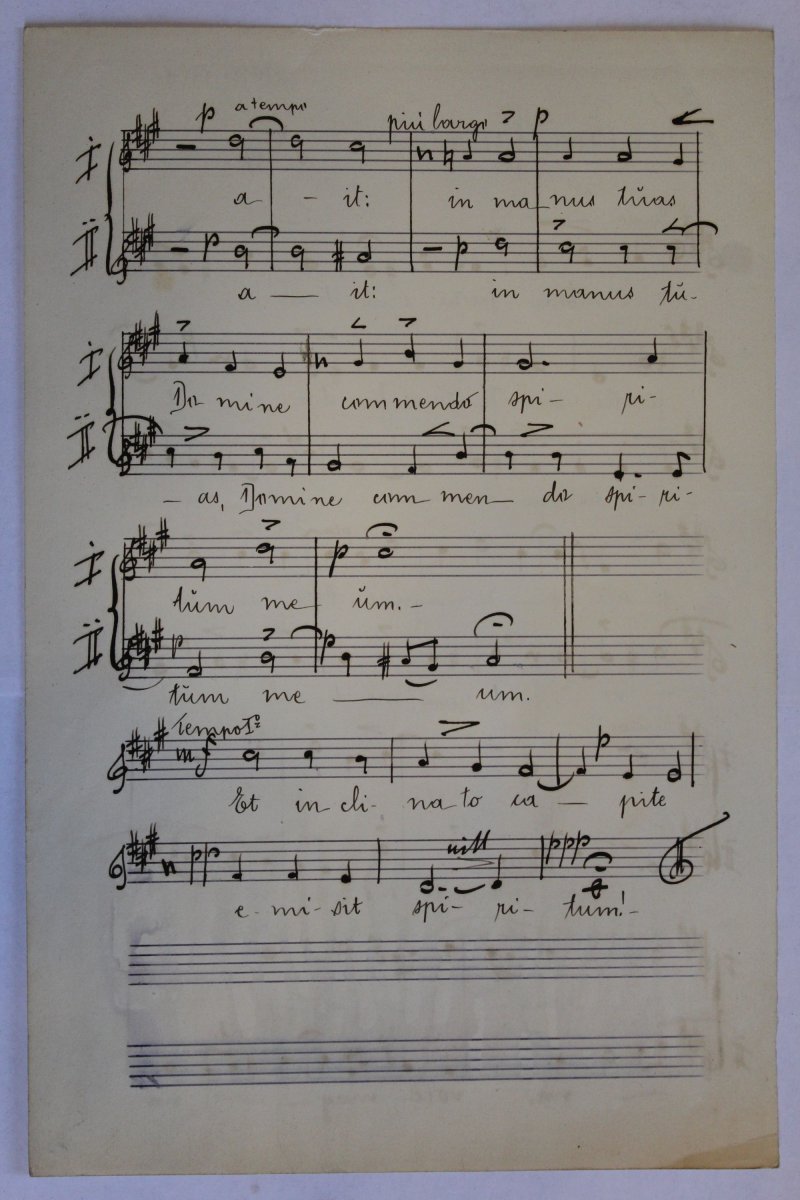 p a tempo più largo p
I
a - it: in ma nus tŭas
p p
II
a — it: in manus tŭ-
I
Do mine commendo spi- ri-
II
- as, Domine com men- do spi- ri-
I
p
tŭm me ŭm.-
II
p p
tŭm me — um.
Tempo I°
mf p
Et in cli- na to ca - pite
pp ppp
e- mi- sit spi- ri- tum!-